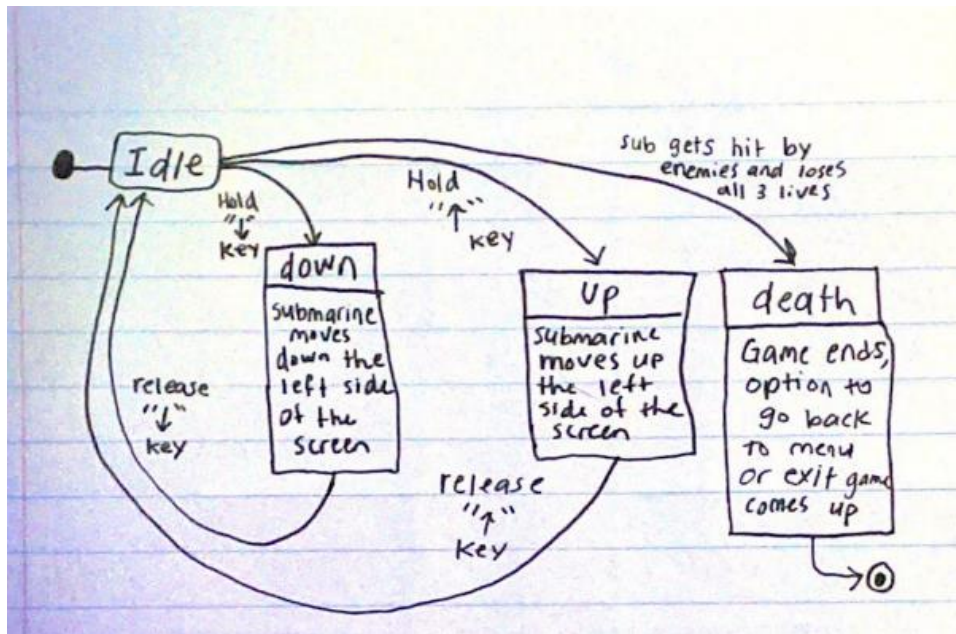 Idle
Hold
"↓"
key
Hold
"↑"
key
sub gets hit by
enemies and loses
all 3 lives
down
submarine
moves
down the
left side
of the
screen
up
submarine
moves up
the left
side of the
screen
death
Game ends,
option to
go back
to menu
or exit game
comes up
release
"↓"
key
release
"↑"
key